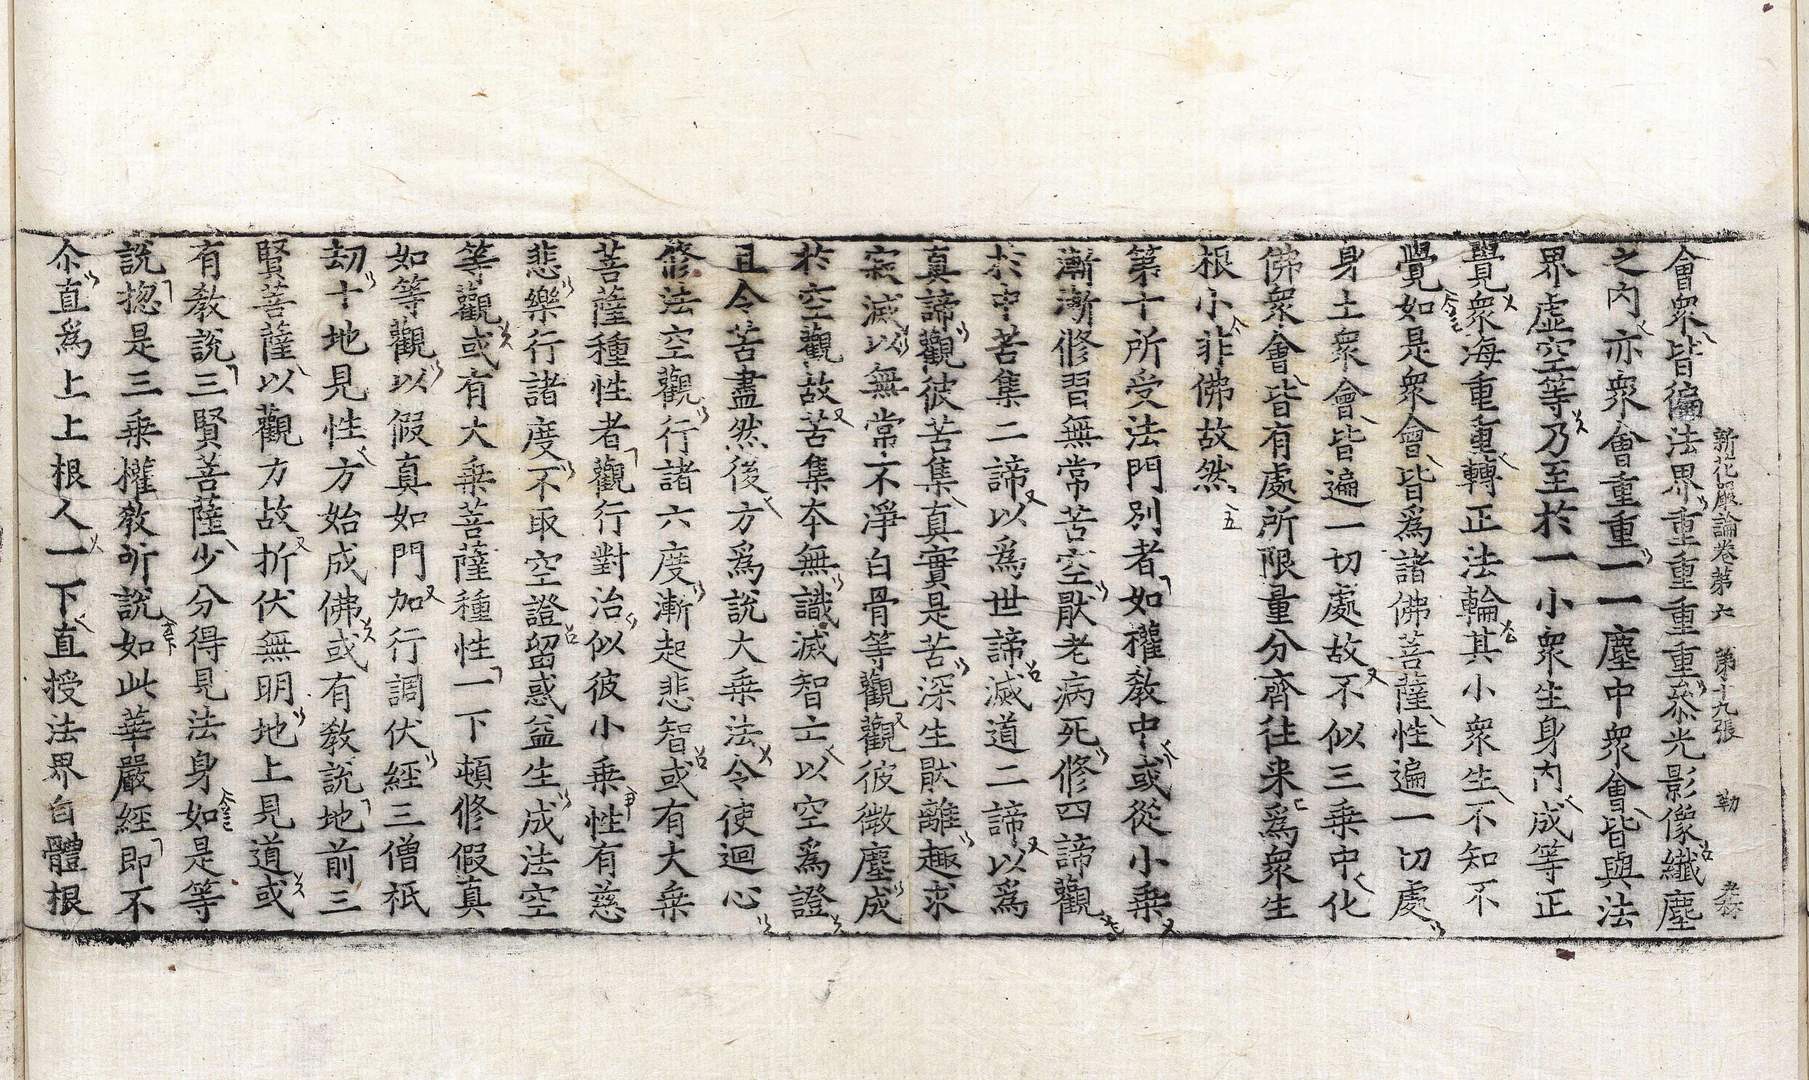 新花嚴論卷第六 第十九張 勒
會衆皆徧法界重重重重叅光影像纖塵
之內亦衆會重重一一塵中衆會皆與法
界虛空等乃至於一小衆生身內成等正
覺衆海重重轉正法輪其小衆生不知不
覺如是衆會皆爲諸佛菩薩性遍一切處
身土衆會皆遍一切處故不似三乘中化
佛衆會皆有處所限量分齊往来爲衆生
根小非佛故然
第十所受法門別者如權敎中或從小乘
漸漸修習無常苦空猒老病死修四諦觀
於中苦集二諦以爲世諦滅道二諦以爲
真諦觀彼苦集真實是苦深生猒離趣求
寂滅以無常不淨白骨等觀觀彼微塵成
於空觀故苦集夲無識滅智亡以空爲證
且令苦盡然後方爲說大乗法令使迴心
修法空觀行諸六度漸起悲智或有大乗
菩薩種性者觀行對治似彼小乗性有慈
悲樂行諸度不取空證留惑益生成法空
等觀或有大乗菩薩種性一下頓修假真
如等觀以假真如門加行調伏經三僧祇
劫十地見性方始成佛或有敎說地前三
賢菩薩以觀方故折伏無明地上見道或
有敎說三賢菩薩少分得見法身如是等
說揔是三乗權敎所說如此華嚴經即不
尒直爲上上根人一下直授法界自體根